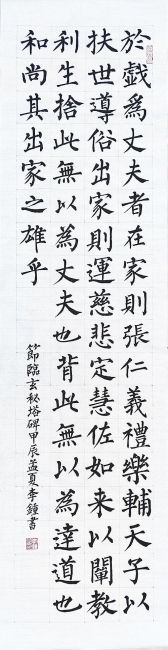 於戲為丈夫者在家則張仁義禮樂輔天子以
扶世導俗出家則運慈悲定慧佐如来以闡教
利生捨此無以為丈夫也背此無以為達道也
和尚其出家之雄乎
節臨玄秘塔碑甲辰孟夏李鍾書